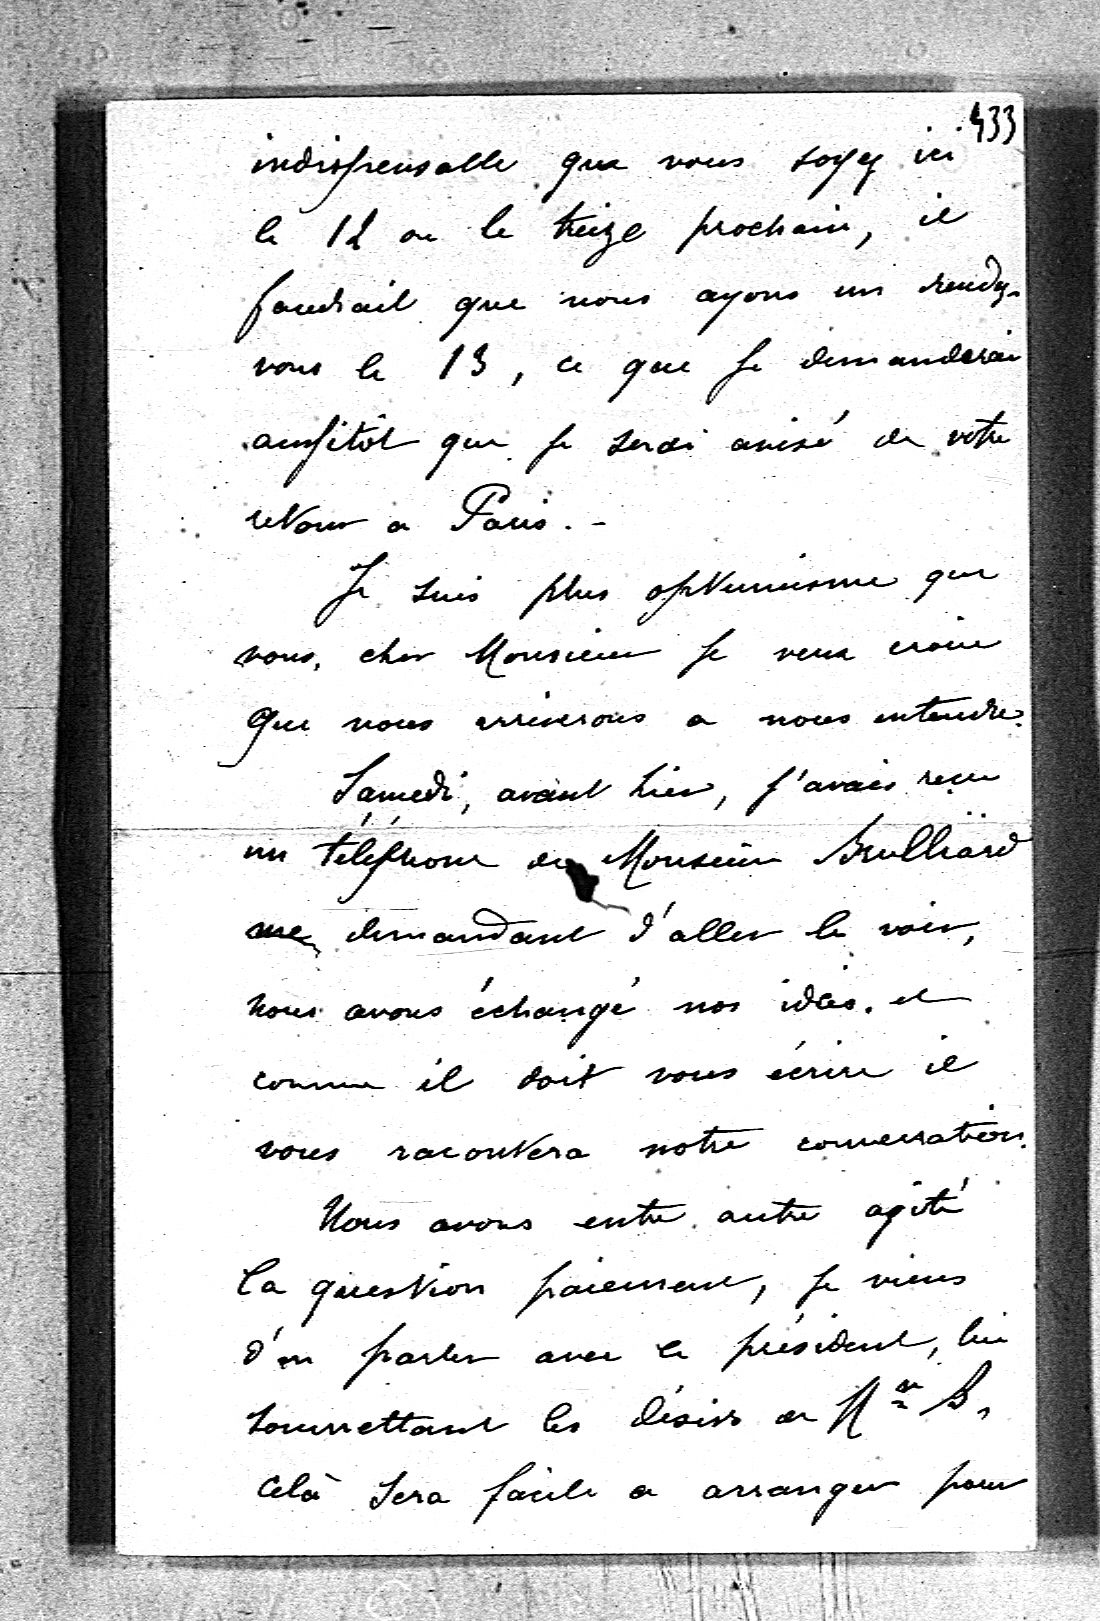 433
indispensable que vous soyez ici
le 12 ou le treize prochain, il
faudrait que nous ayons un rendez-
vous le 13, ce que je demanderai
aussitôt que je serai avisé de votre
retour a Paris. -
Je suis plus optimisme que
vous, cher Monsieur je veux croire
que nous arriverons a nous entendre.
Samedi, avant hier, j'avais reçu
un téléphone de Monsieur Brulliard
me demandant d'aller le voir,
nous avons échangé nos idées. et
comme il doit vous écrire il
vous racontera notre conversation.
Nous avons entre autre agité
la question paiement, je viens
d'en parler avec le président, lui
soumettant les désirs de Mr B,
celà sera facile a arranger pour